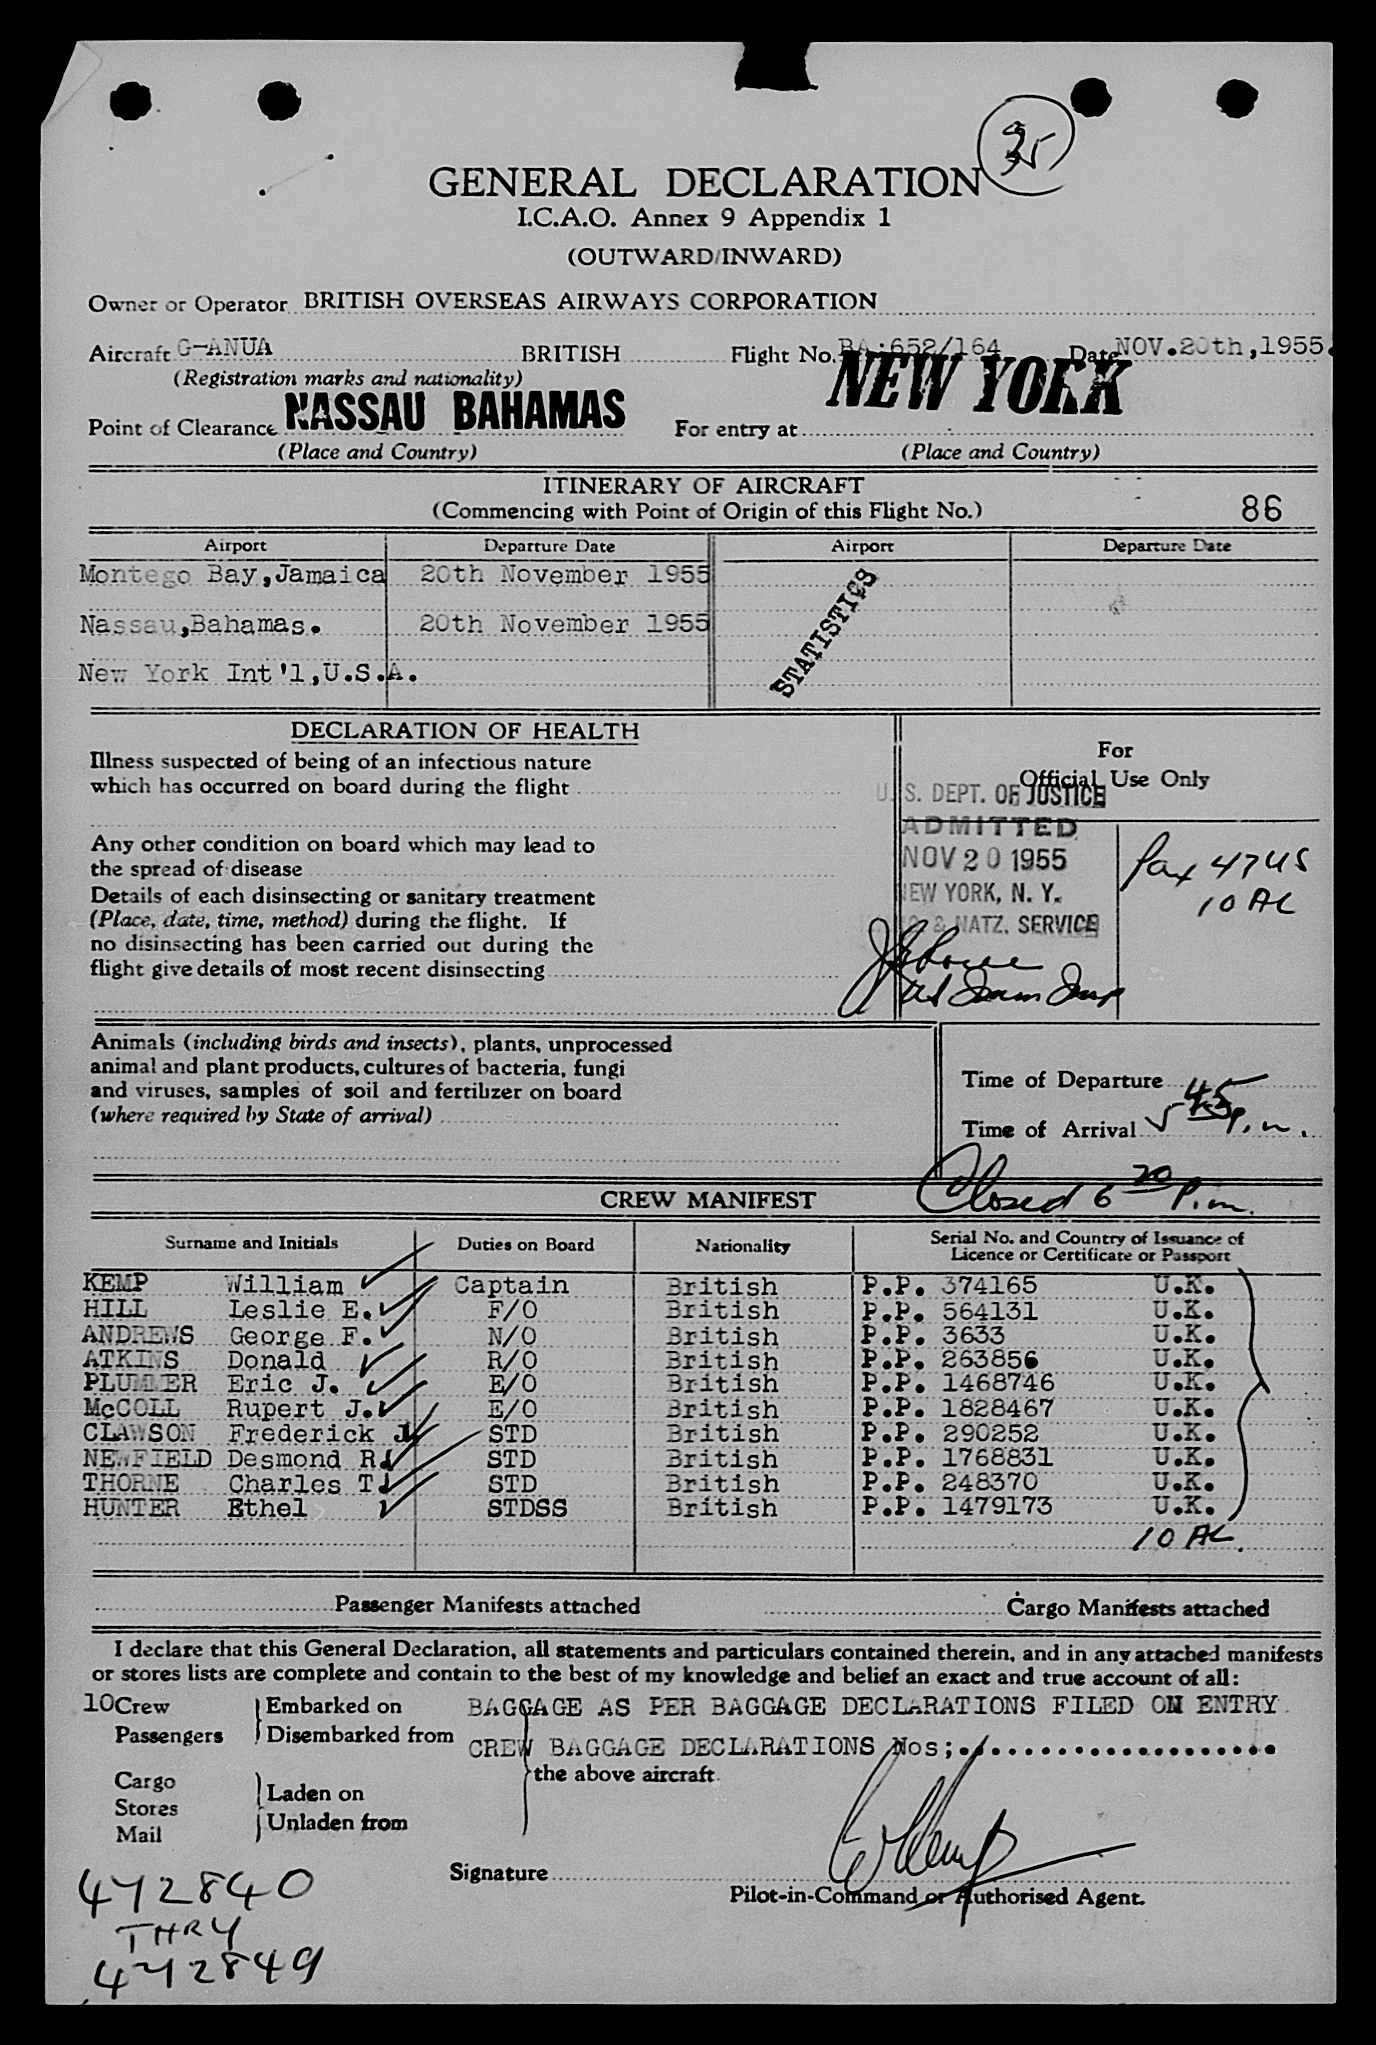 35
GENERAL DECLARATION
I.C.A.O. Annex 9 Appendix 1
(OUTWARD/INWARD)
Owner or Operator BRITISH OVERSEAS AIRWAYS CORPORATION
Aircraft G-ANUA BRITISH Flight No. BA:652/164 Date NOV.20th,1955.
(Registration marks and nationality)
Point of Clearance NASSAU BAHAMAS For entry at NEW YORK
(Place and Country) (Place and Country)
ITINERARY OF AIRCRAFT
(Commencing with Point of Origin of this Flight No.) 86
Airport Departure Date Airport Departure Date
Montego Bay,Jamaica 20th November 1955
Nassau,Bahamas. 20th November 1955
New York Int'l,U.S.A.
STATISTICS
DECLARATION OF HEALTH
Illness suspected of being of an infectious nature
which has occurred on board during the flight
Any other condition on board which may lead to
the spread of disease
Details of each disinsecting or sanitary treatment
(Place, date, time, method) during the flight. If
no disinsecting has been carried out during the
flight give details of most recent disinsecting
For
Official Use Only
U.S. DEPT. OF JUSTICE
ADMITTED
NOV 20 1955
NEW YORK, N. Y.
& NATZ. SERVICE
Pax 47 US
10 AL
Animals (including birds and insects), plants, unprocessed
animal and plant products, cultures of bacteria, fungi
and viruses, samples of soil and fertilizer on board
(where required by State of arrival)
Time of Departure
Time of Arrival 5 45 p.m.
Closed 6 20 p.m.
CREW MANIFEST
Surname and Initials Duties on Board Nationality Serial No. and Country of Issuance of
Licence or Certificate or Passport
KEMP William Captain British P.P. 374165 U.K.
HILL Leslie E. F/O British P.P. 564131 U.K.
ANDREWS George F. N/O British P.P. 3633 U.K.
ATKINS Donald R/O British P.P. 263856 U.K.
PLUMMER Eric J. E/O British P.P. 1468746 U.K.
McCOLL Rupert J. E/O British P.P. 1828467 U.K.
CLAWSON Frederick J STD British P.P. 290252 U.K.
NEWFIELD Desmond R. STD British P.P. 1768831 U.K.
THORNE Charles T. STD British P.P. 248370 U.K.
HUNTER Ethel STDSS British P.P. 1479173 U.K.
10 AL.
Passenger Manifests attached Cargo Manifests attached
I declare that this General Declaration, all statements and particulars contained therein, and in any attached manifests
or stores lists are complete and contain to the best of my knowledge and belief an exact and true account of all:
10 Crew Embarked on BAGGAGE AS PER BAGGAGE DECLARATIONS FILED ON ENTRY.
Passengers Disembarked from CREW BAGGAGE DECLARATIONS Nos;......................
the above aircraft.
Cargo
Stores Laden on
Mail Unladen from
Signature W Kemp
Pilot-in-Command or Authorised Agent.
472840
THRU
472849